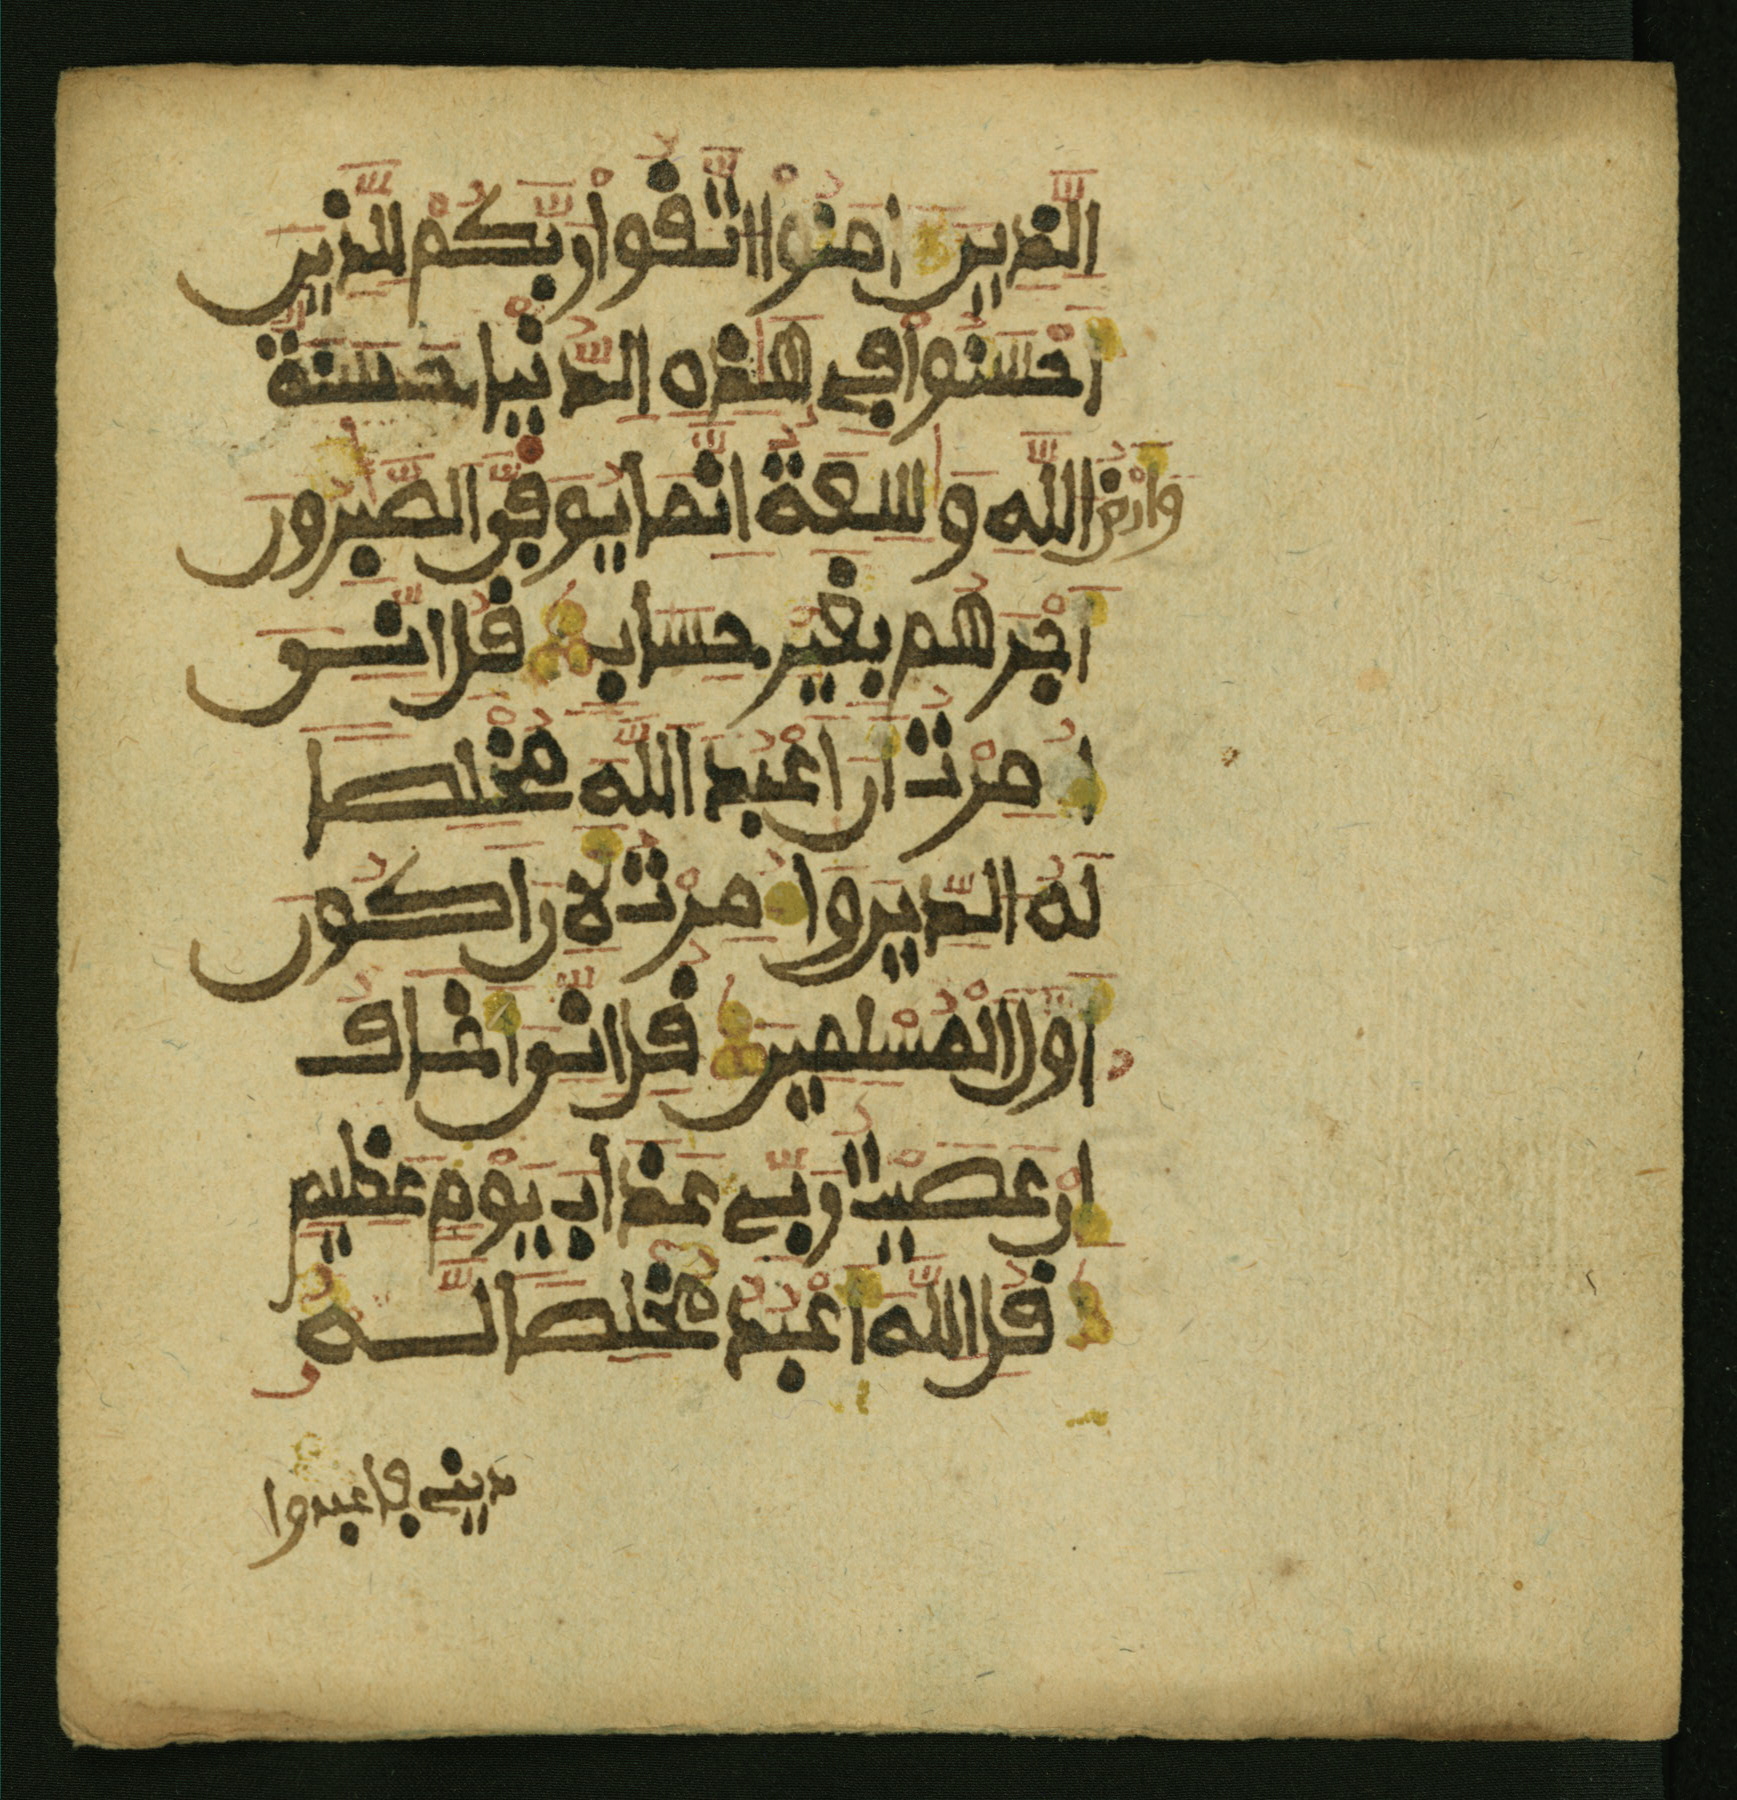 الذين امنوا اتقوا ربكم للذين
احسنوا في هذه الدنيا حسنة
وارض الله وسعة انما يوفى الصبرون
اجرهم بغير حساب قل انى
امرت ان اعبد الله مخلصا
له الدين وامرت لان اكون
اول المسلمين قل انى اخاف
ان عصيت ربي عذاب يوم عظيم
قل الله اعبد مخلصا له
ديني فاعبدوا